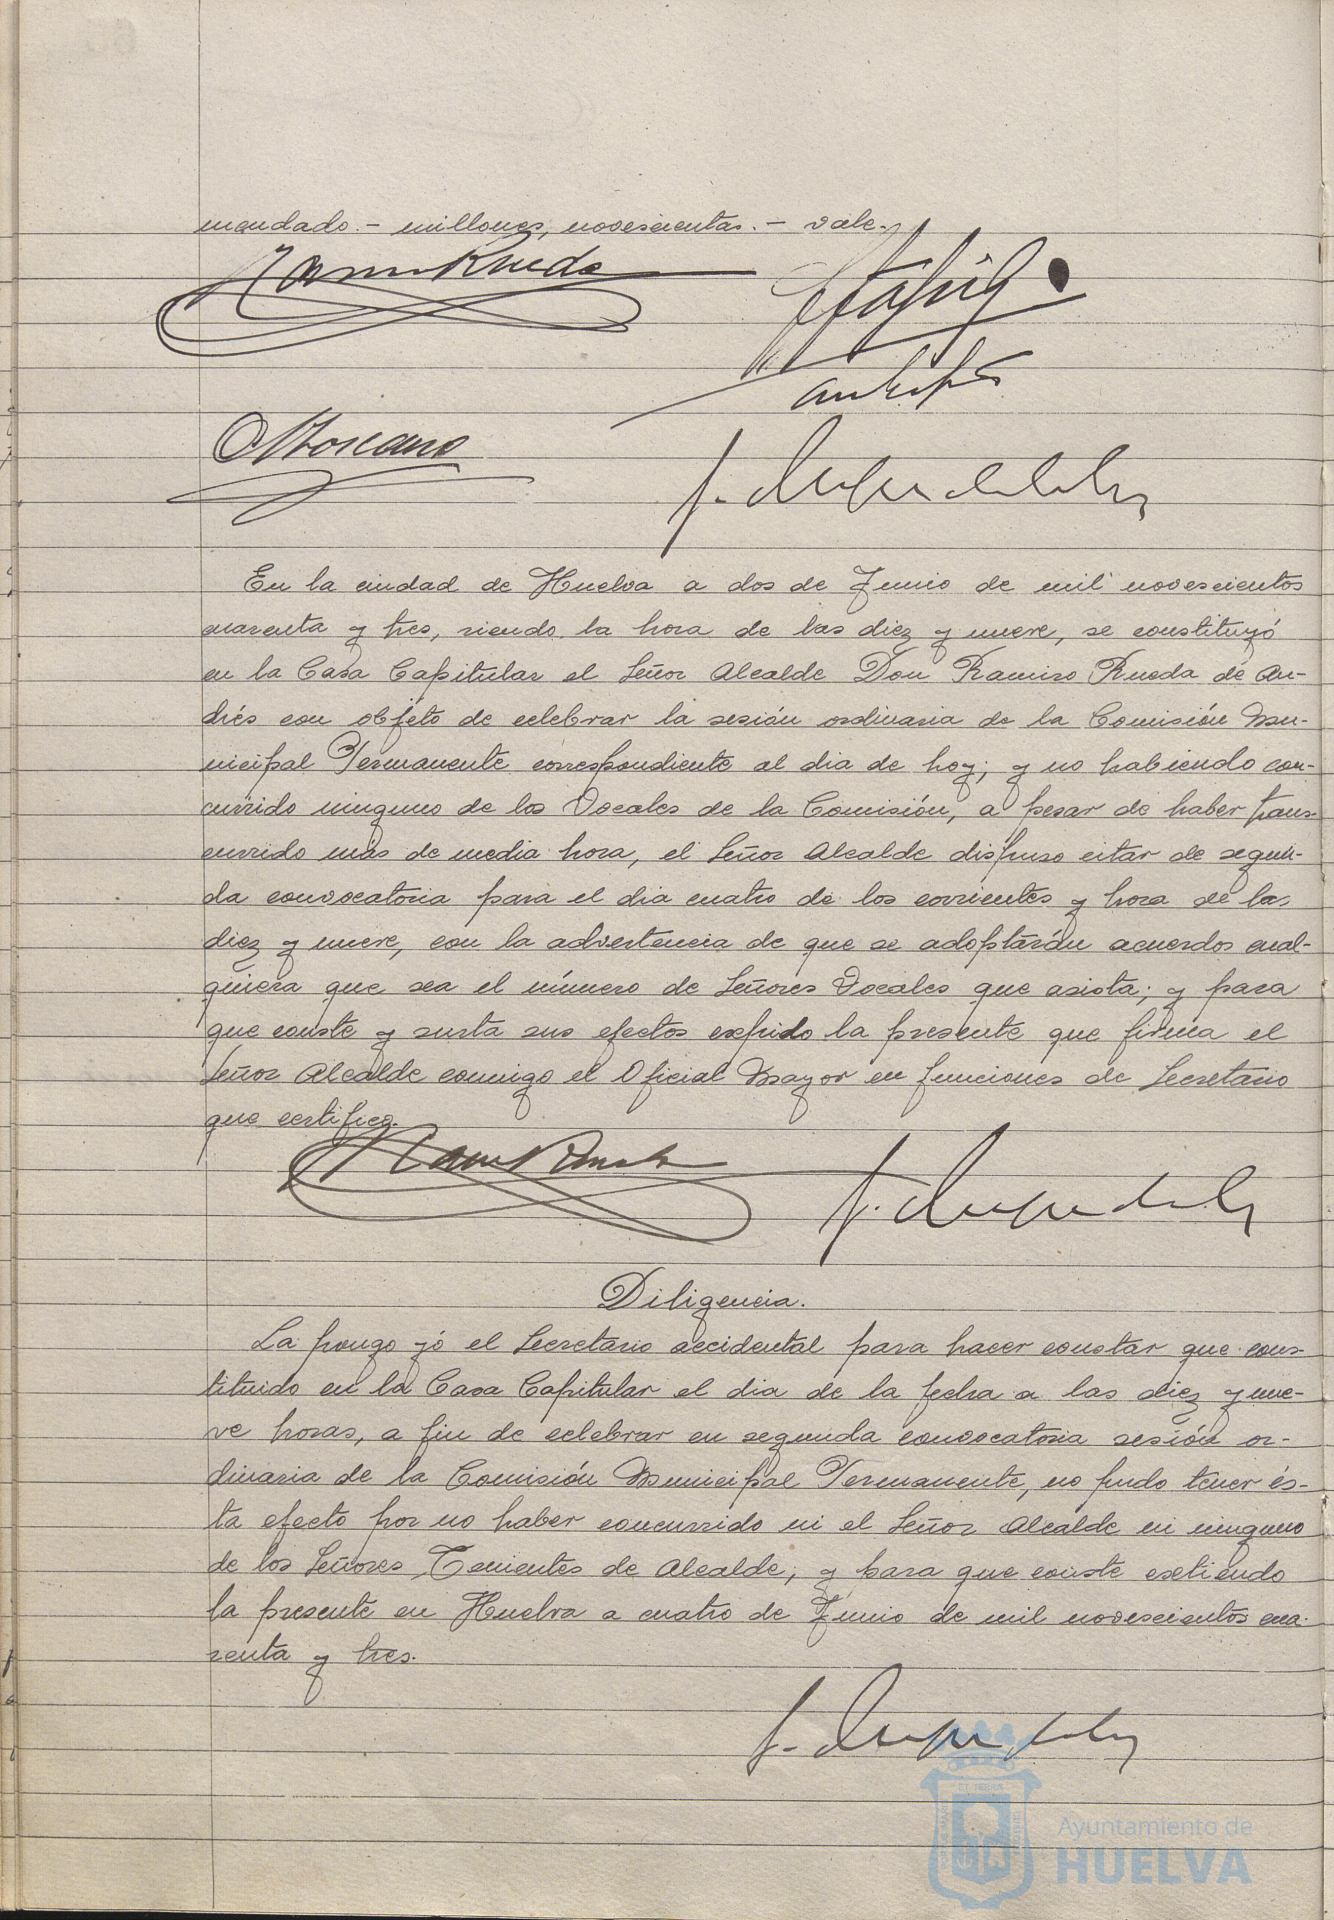 mendado. - millones, novescientas. - vale.
Ramiro Rueda
O Moscano
En la ciudad de Huelva a dos de Junio de mil novescientos
cuarenta y tres, siendo la hora de las diez y nueve, se constituyó
en la Casa Capitular el Señor Alcalde Don Ramiro Rueda de An-
drés con objeto de celebrar la sesión ordinaria de la Comisión Mu-
nicipal Permanente correspondiente al dia de hoy; y no habiendo con-
currido ninguno de los Vocales de la Comisión, a pesar de haber trans-
currido más de media hora, el Señor Alcalde dispuso citar de segun-
da convocatoria para el dia cuatro de los corrientes y hora de las
diez y nueve, con la advertencia de que se adoptarán acuerdos cual-
quiera que sea el número de Señores Vocales que asista; y para
que conste y surta sus efectos expido la presente que firma el
Señor Alcalde conmigo el Oficial Mayor en funciones de Secretario
que certifico.
Ramiro Rueda
Diligencia.
La pongo yó el Secretario accidental para hacer constar que cons-
tituido en la Casa Capitular el dia de la fecha a las diez y nue-
ve horas, a fin de celebrar en segunda convocatoria sesión or-
dinaria de la Comisión Municipal Permanente, no pudo tener és-
ta efecto por no haber concurrido ni el Señor Alcalde ni ninguno
de los Señores Tenientes de Alcalde; y para que conste extiendo
la presente en Huelva a cuatro de Junio de mil novescientos cua-
renta y tres.
Ayuntamiento de
HUELVA